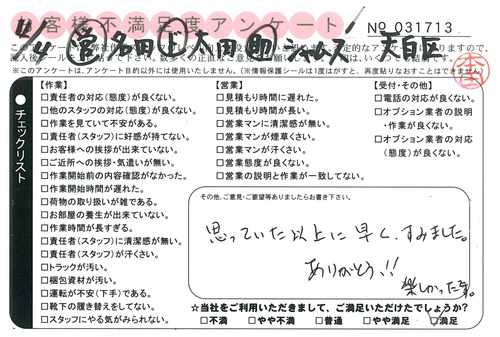 お客様不満足度アンケート
No 031713
4/4
天白区
※このアンケートは、アンケート目的以外には使用いたしません。(※情報保護シールは1度はがすと、再度貼りなおすことはできません)
チェックリスト
【作業】
□責任者の対応(態度)が良くない。
□他のスタッフの対応(態度)が良くない。
□作業を見ていて不安がある。
□責任者(スタッフ)に好感が持てない。
□お客様への挨拶が出来ていない。
□ご近所への挨拶・気遣いが無い。
□作業開始前の内容確認がなかった。
□作業開始時間が遅れた。
□荷物の取り扱いが雑である。
□お部屋の養生が出来ていない。
□作業時間が長すぎる。
□責任者(スタッフ)に清潔感が無い。
□責任者(スタッフ)が汗くさい。
□トラックが汚い。
□梱包資材が汚い。
□運転が不安(下手)である。
□靴下の履き替えをしてない。
□スタッフにやる気がみられない。
【営業】
□見積もり時間に遅れた。
□見積もり時間が長い。
□営業マンに清潔感が無い。
□営業マンが煙草くさい。
□営業マンが汗くさい。
□営業態度が良くない。
□営業の説明と作業が一致してない。
【受付・その他】
□電話の対応が良くない。
□オプション業者の説明
・作業が良くない。
□オプション業者の対応
(態度)が良くない。
その他、ご意見・ご要望等ありましたらお書き下さい。
思っていた以上に早く、すみました。
ありがとう!!
楽しかったです。
☆当社をご利用いただきまして、ご満足いただけたでしょうか?
□不満 □やや不満 □普通 □やや満足 □満足